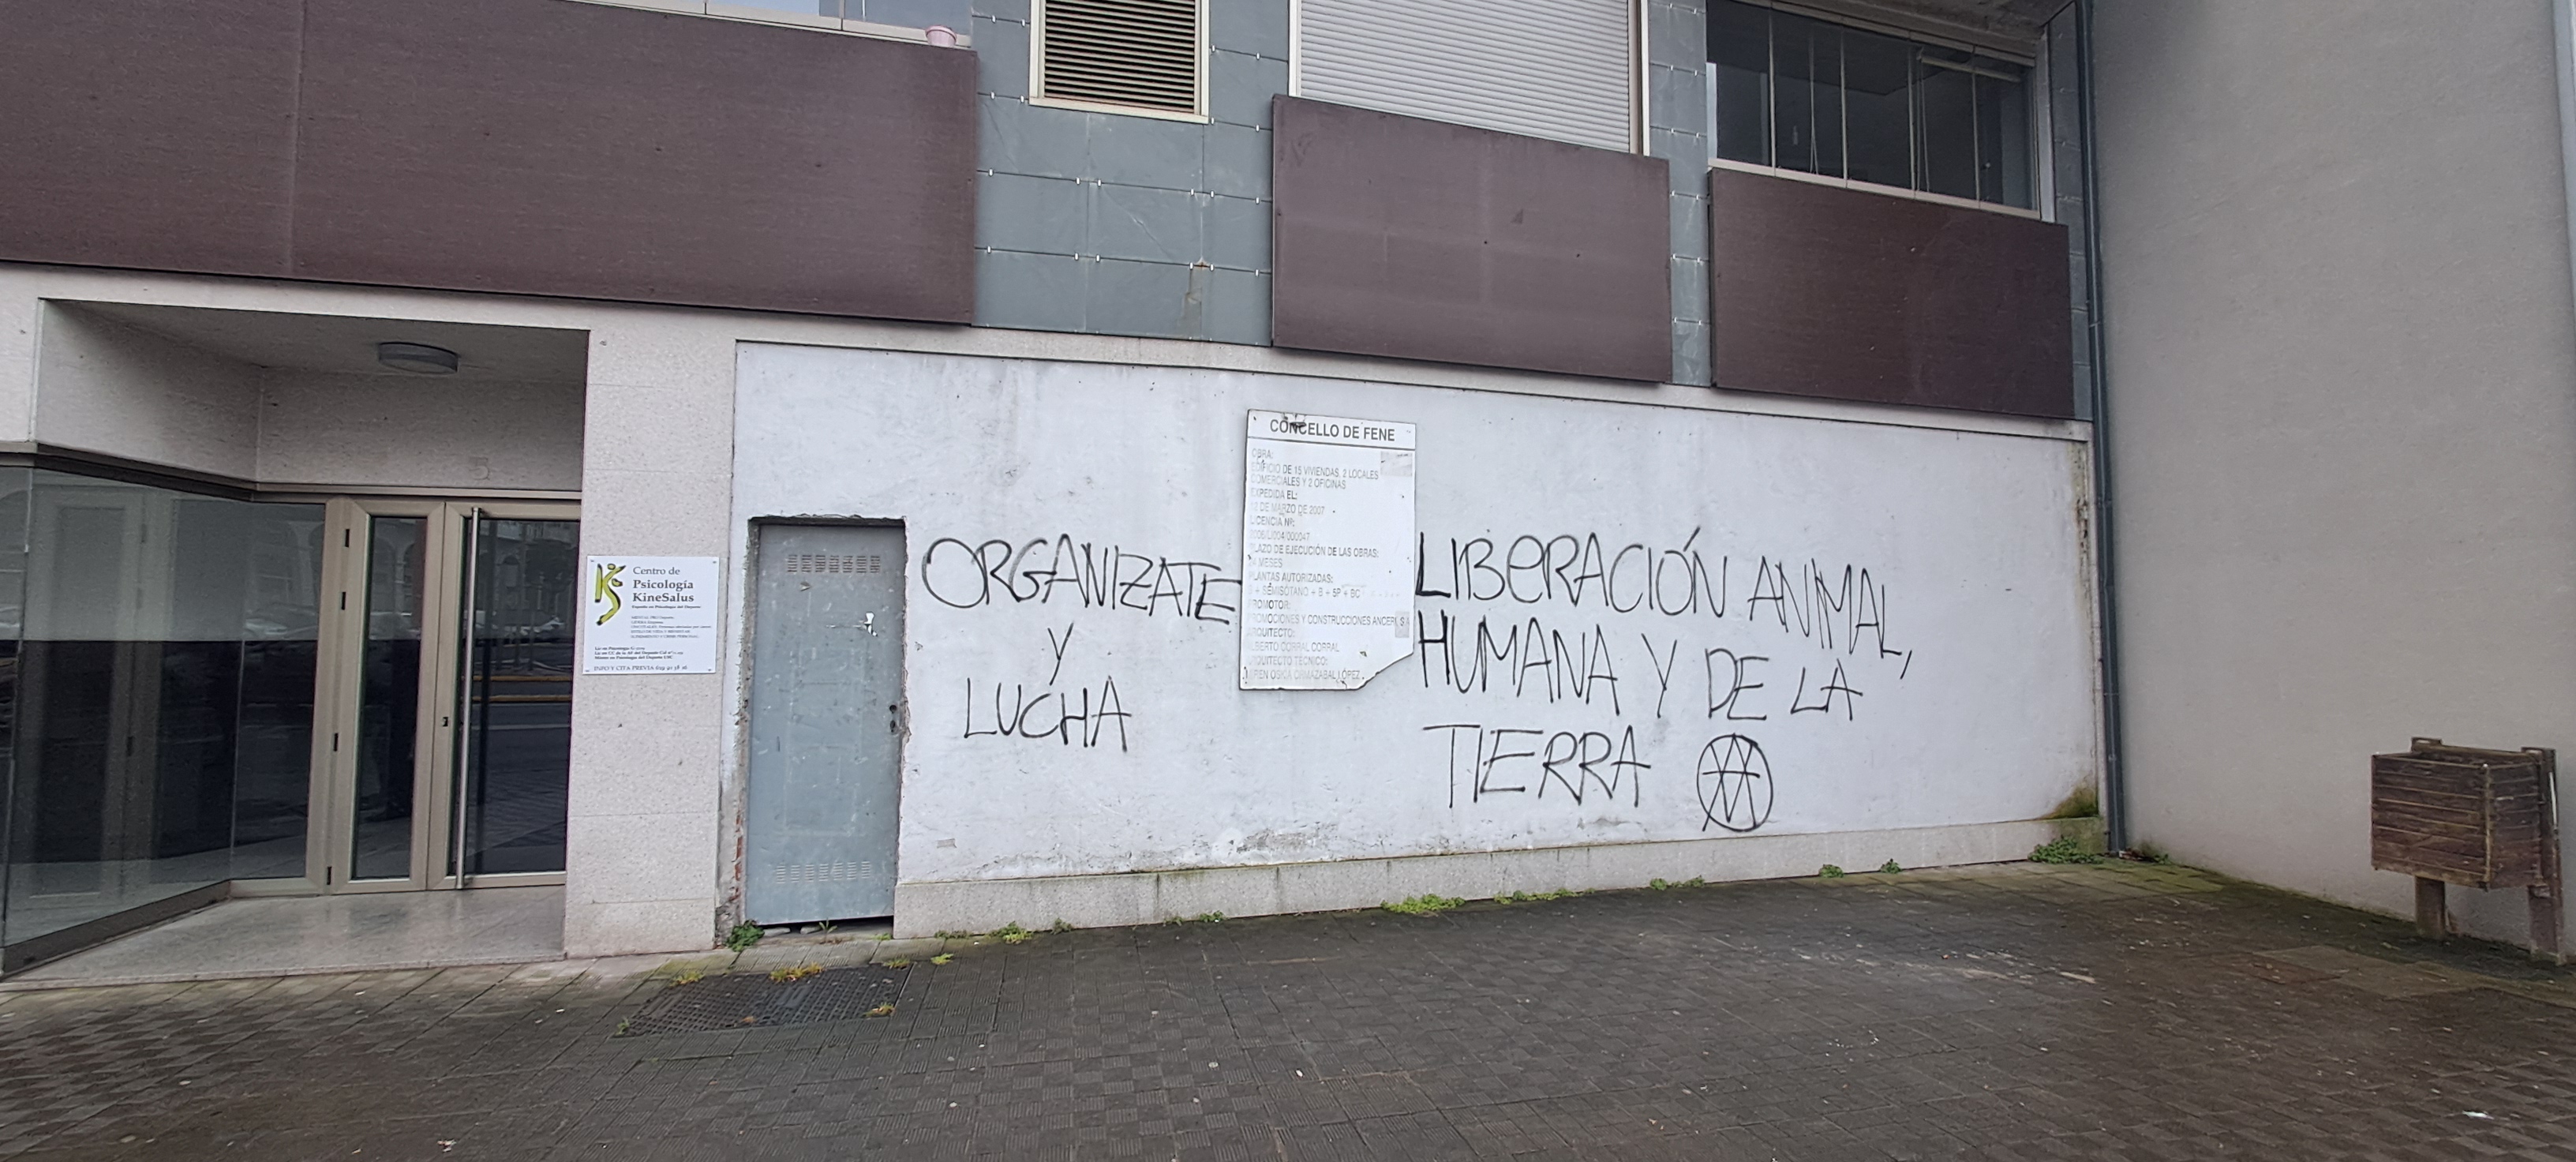 Centro de
Psicología
KineSalus
Experto en Psicología del Deporte
INFO Y CITA PREVIA
ORGANIZATE
Y
LUCHA
CONCELLO DE FENE
OBRA:
EDIFICIO DE 15 VIVIENDAS, 2 LOCALES
COMERCIALES Y 2 OFICINAS
EXPEDIDA EL:
DE MARZO DE 2007
LICENCIA Nº:
PLAZO DE EJECUCIÓN DE LAS OBRAS:
MESES
PLANTAS AUTORIZADAS:
+ SEMISÓTANO + B + 5P + BC
PROMOTOR:
PROMOCIONES Y CONSTRUCCIONES
ARQUITECTO:
ALBERTO CORRAL CORRAL
ARQUITECTO TÉCNICO:
LÓPEZ
LIBERACIÓN ANIMAL,
HUMANA Y DE LA
TIERRA